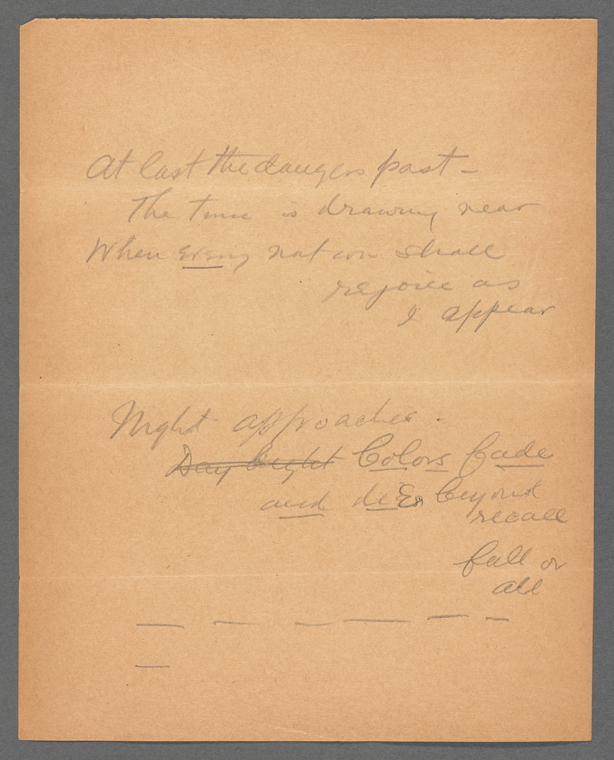 At last the dangers past –
The time is drawing near
When every nation shall
rejoice as
I appear
Night approaches.
Day light Colors fade
and die beyond
recall
fall or
all